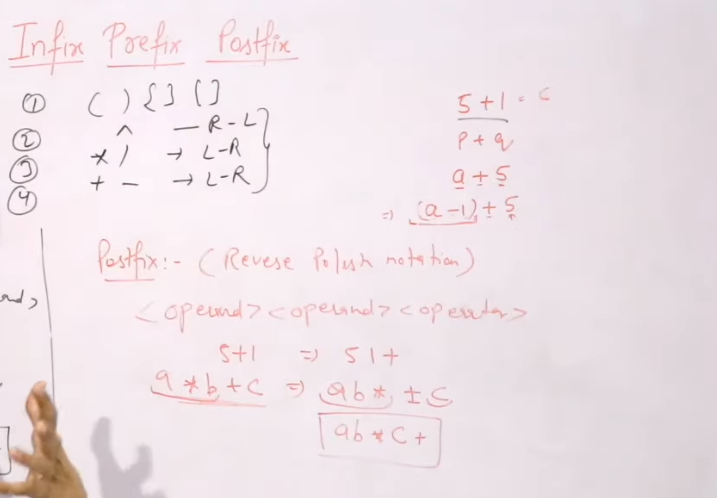 Infix Prefix Postfix
① ( ) { } [ ]
② ^ — R-L
③ * / → L-R
④ + - → L-R
5+1 = 6
P+q
a+5
⇒ (a-1)+5
Postfix:- (Revese Polish notation)
<operand> <operand> <operator>
5+1 ⇒ 51+
a*b+c ⇒ ab* + c
ab*c+